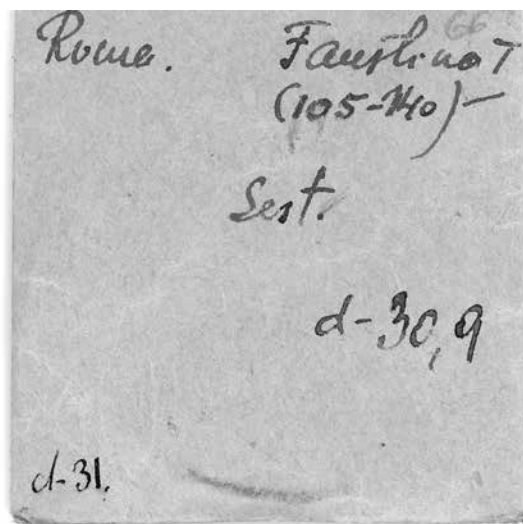 66
Roma. Faustina I
(105-140)—
Sest.
d-30,9
d-31.